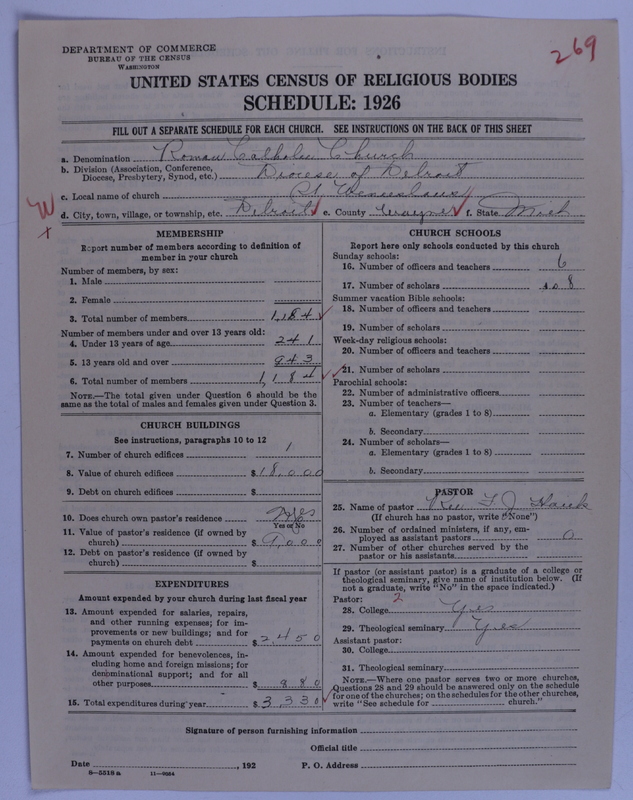 269
DEPARTMENT OF COMMERCE
BUREAU OF THE CENSUS
WASHINGTON
UNITED STATES CENSUS OF RELIGIOUS BODIES
SCHEDULE: 1926
FILL OUT A SEPARATE SCHEDULE FOR EACH CHURCH. SEE INSTRUCTIONS ON THE BACK OF THIS SHEET
a. Denomination Roman Catholic Church
b. Division (Association, Conference, Diocese, Presbytery, Synod, etc.) Diocese of Detroit
c. Local name of church St. Wenceslaus
W
x
d. City, town, village, or township, etc. Detroit e. County Wayne f. State Mich
MEMBERSHIP
Report number of members according to definition of
member in your church
Number of members, by sex:
1. Male
2. Female
3. Total number of members 1,184
Number of members under and over 13 years old:
4. Under 13 years of age 241
5. 13 years old and over 943
6. Total number of members 1,184
NOTE.—The total given under Question 6 should be the
same as the total of males and females given under Question 3.
CHURCH BUILDINGS
See instructions, paragraphs 10 to 12
7. Number of church edifices 1
8. Value of church edifices $18,000
9. Debt on church edifices $
10. Does church own pastor's residence Yes
Yes or No
11. Value of pastor's residence (if owned by
church) $ 9,000
12. Debt on pastor's residence (if owned by
church) $
EXPENDITURES
Amount expended by your church during last fiscal year
13. Amount expended for salaries, repairs,
and other running expenses; for im-
provements or new buildings; and for
payments on church debt $2450
14. Amount expended for benevolences, in-
cluding home and foreign missions; for
denominational support; and for all
other purposes $ 880
15. Total expenditures during year $3330
CHURCH SCHOOLS
Report here only schools conducted by this church
Sunday schools:
16. Number of officers and teachers 6
17. Number of scholars
Summer vacation Bible schools:
18. Number of officers and teachers
19. Number of scholars
Week-day religious schools:
20. Number of officers and teachers
21. Number of scholars
Parochial schools:
22. Number of administrative officers
23. Number of teachers—
a. Elementary (grades 1 to 8)
b. Secondary
24. Number of scholars—
a. Elementary (grades 1 to 8)
b. Secondary
PASTOR
25. Name of pastor Rev F J
(If church has no pastor, write "None")
26. Number of ordained ministers, if any, em-
ployed as assistant pastors 0
27. Number of other churches served by the
pastor or his assistants
If pastor (or assistant pastor) is a graduate of a college or
theological seminary, give name of institution below. (If
not a graduate, write "No" in the space indicated.)
Pastor: 2
28. College Yes
29. Theological seminary Yes
Assistant pastor:
30. College
31. Theological seminary
NOTE.—Where one pastor serves two or more churches,
Questions 28 and 29 should be answered only on the schedule
for one of the churches; on the schedules for the other churches,
write "See schedule for church."
Signature of person furnishing information
Official title
Date , 192 P. O. Address
8—5518a 11—9054